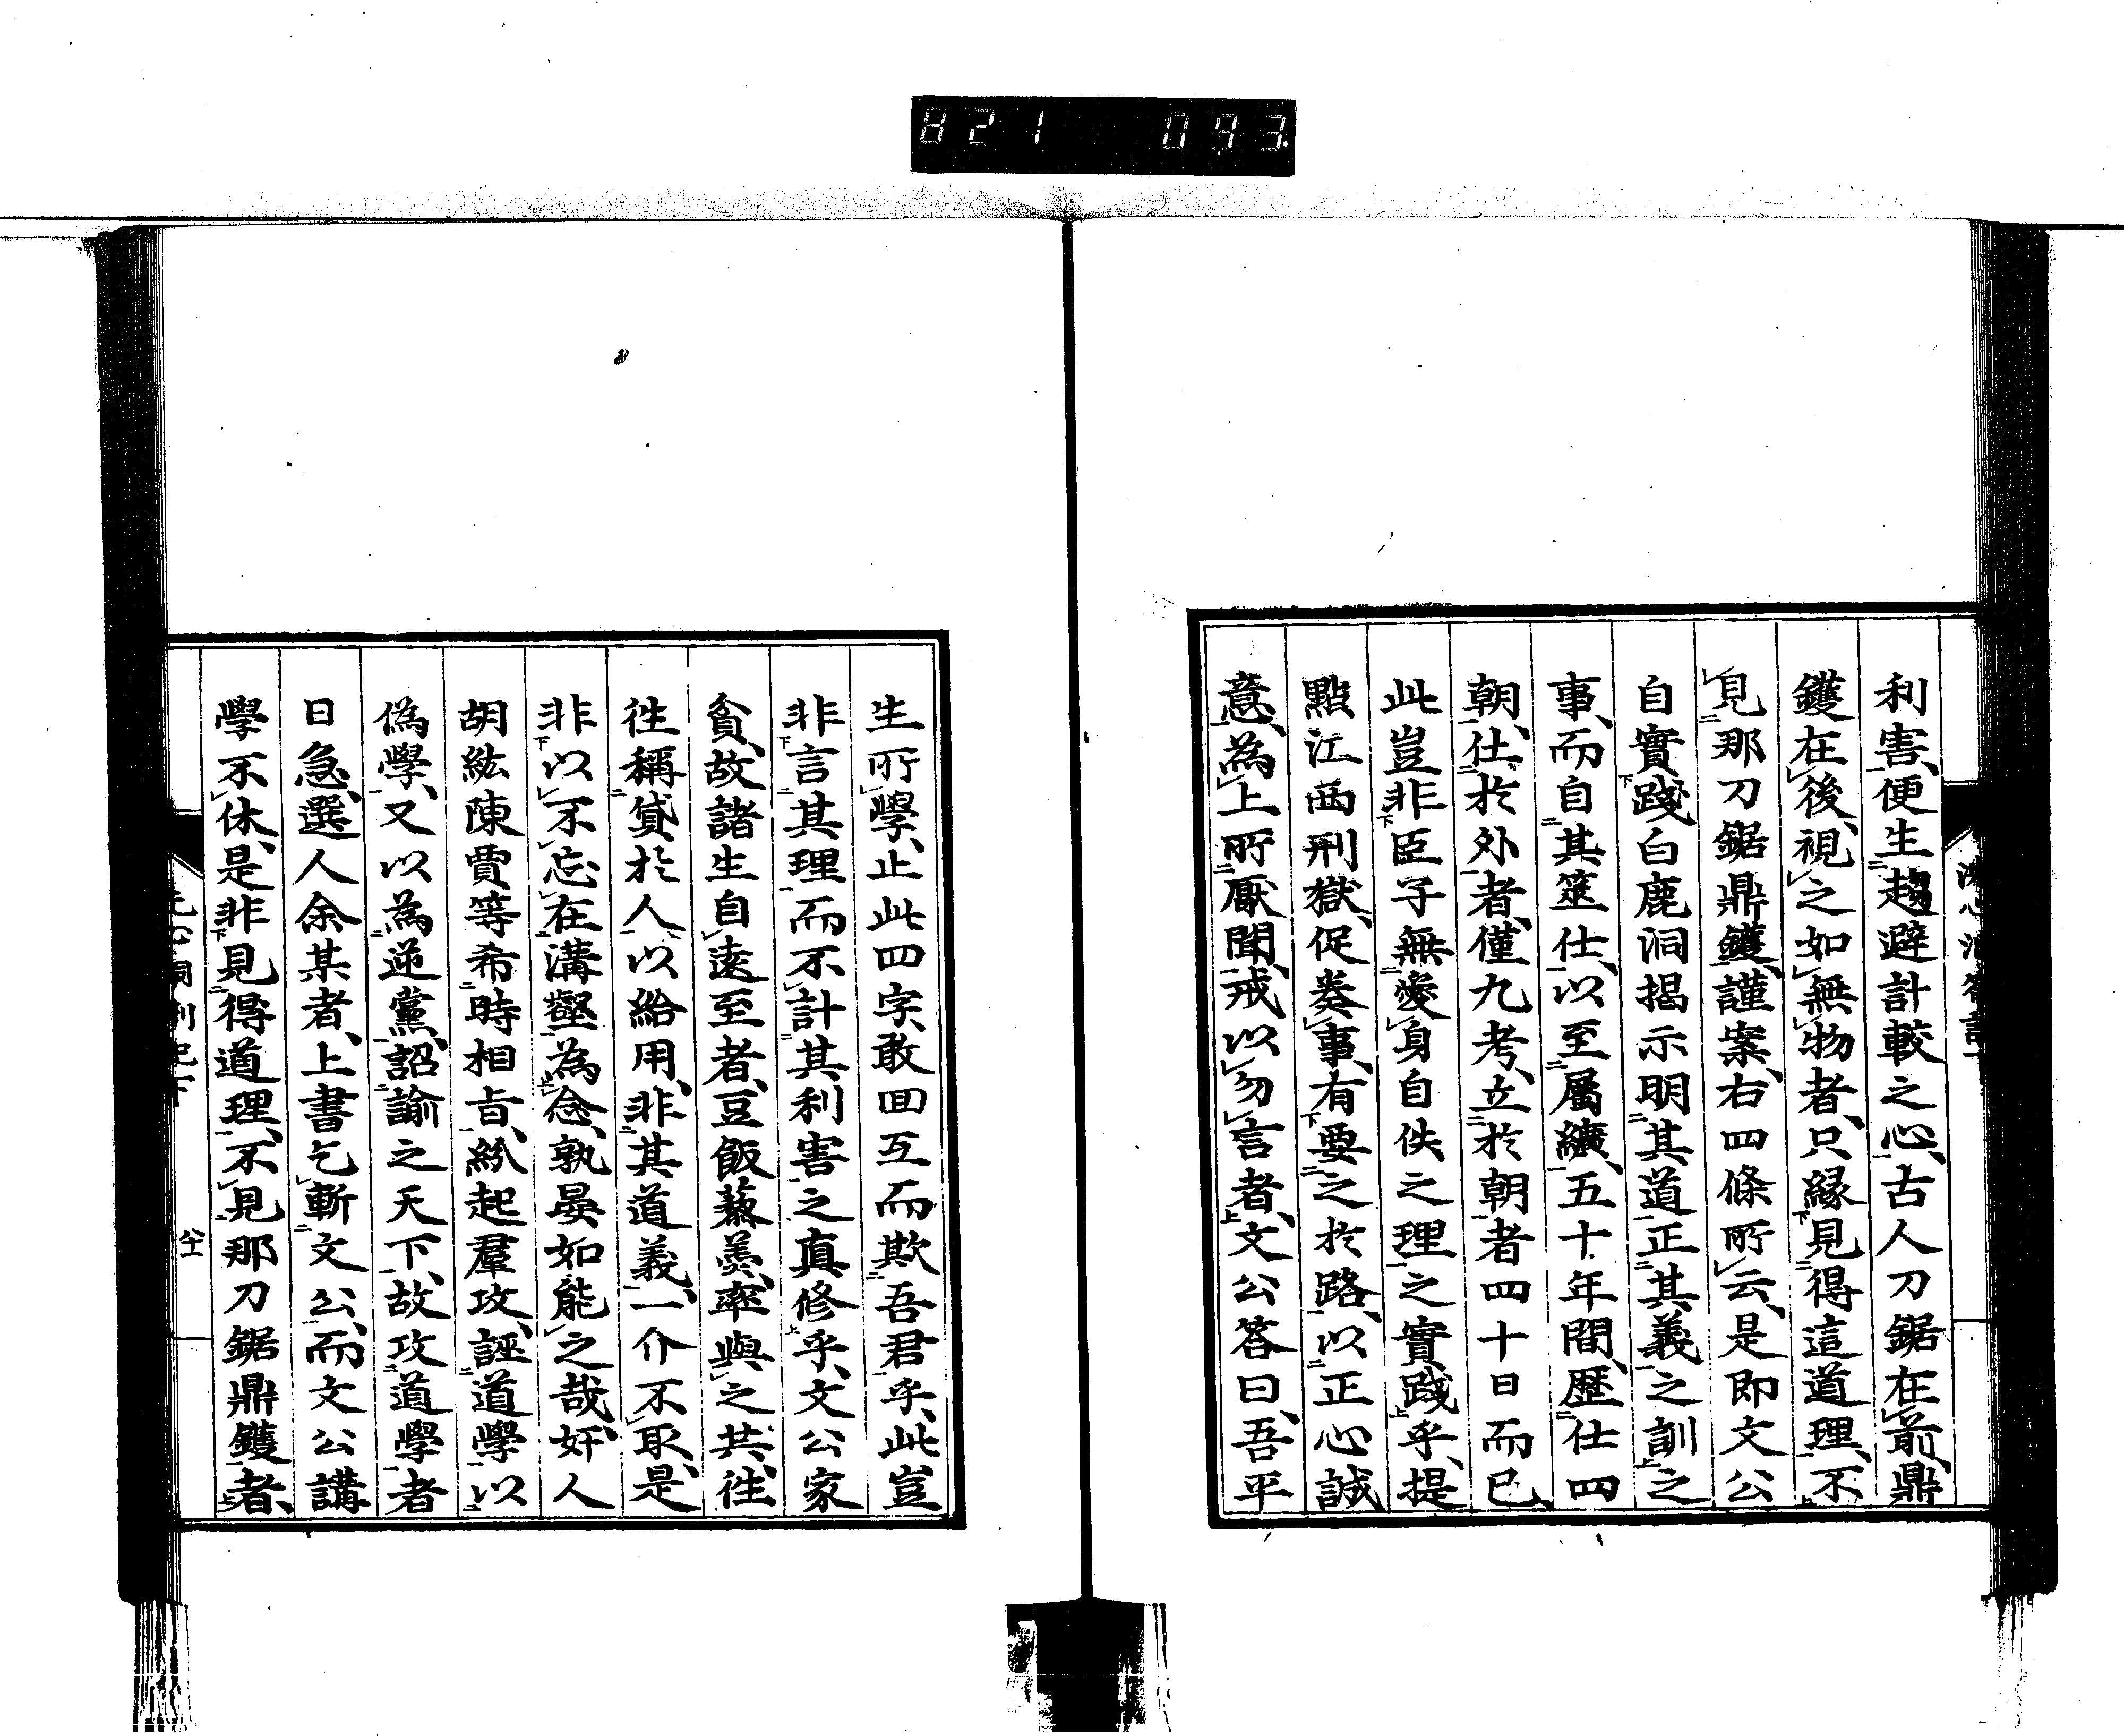 821 093
利害、便生趨避計較之心、古人刀鋸在前、鼎
鑊在後、視之如無物者、只縁見得這道理、不
見那刀鋸鼎鑊、謹案、右四條所云、是即文公
自實踐白鹿洞揭示明其道正其義之訓之
事、而自其筮仕、以至屬纊、五十年間、歷仕四
朝、仕於外者、僅九考、立於朝者四十日而已、
此豈非臣子無愛身自佚之理之實踐乎、提
點江西刑獄、促奏事、有要之於路、以正心誠
意、為上所厭聞、戒以勿言者、文公答曰、吾平
生所學、止此四字、敢回互而欺吾君乎、此豈
非言其理而不計其利害之真修乎、文公家
貧、故諸生自遠至者、豆飯藜羹、率與之共、往
徃稱貸於人、以給用、非其道義、一介不取、是
非以不忘在溝壑為念、孰晏如能之哉、奸人
胡紘陳賈等希時相㫖、紛起羣攻、誣道學、以
偽學、又以為逆黨、詔諭之天下、故攻道學者
日急、選人余某者、上書乞斬文公、而文公講
學不休、是非見得道理、不見那刀鋸鼎鑊者、